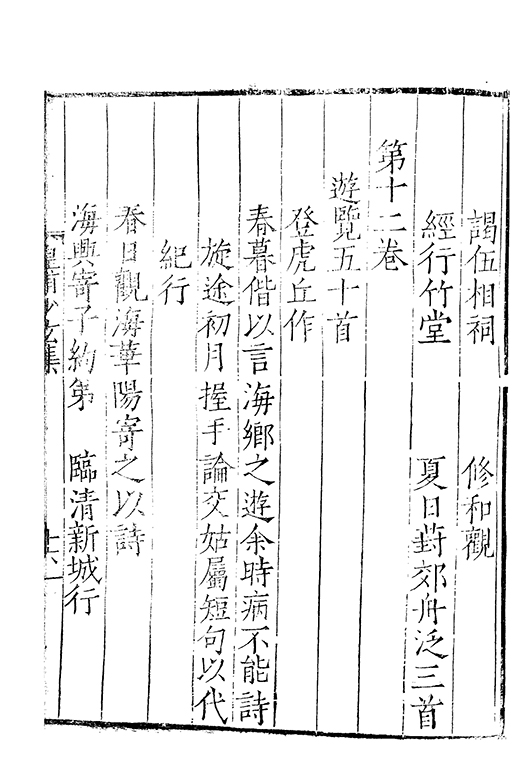 謁伍相祠　修和觀
經行竹堂　夏日葑郊舟泛三首
第十二卷
遊覽五十首
登虎丘作
春暮偕以言海鄉之遊余時病不能詩
旋途初月握手論交姑屬短句以代
紀行
春日觀海華陽寄之以詩
海興寄子約第　臨清新城行
皇甫少玄集